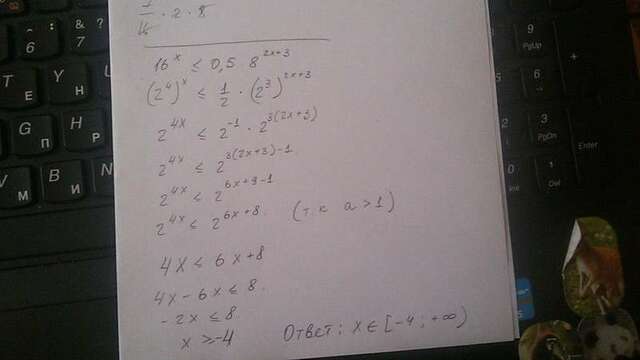 1/16 · 2 · 8
16^x ≤ 0,5 · 8^(2x+3)
(2^4)^x ≤ 1/2 · (2^3)^(2x+3)
2^(4x) ≤ 2^(-1) · 2^(3(2x+3))
2^(4x) ≤ 2^(3(2x+3)-1)
2^(4x) ≤ 2^(6x+9-1)
2^(4x) ≤ 2^(6x+8). (т.к a>1)
4x ≤ 6x+8
4x-6x ≤ 8.
-2x ≤ 8.
x ≥ -4
Ответ: x ∈ [-4; +∞)
& 7
6
?
T
E
Y
Н
G
П
H
Р
V
М
B
И
9
PgUp
+
3
PgDn
Ins
Del